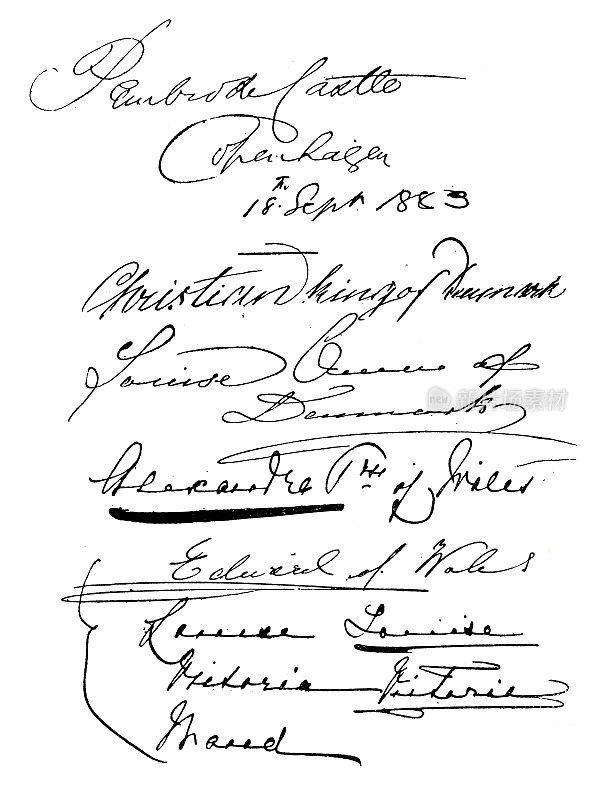 Pembroke Castle
Copenhagen
18.th Sept. 1883
Christian king of Denmark
Louise Queen of
Denmark
new 新片场素材
Alexandra Pss of Wales
Edward of Wales
Louise Louise
Victoria Victoria
Maud